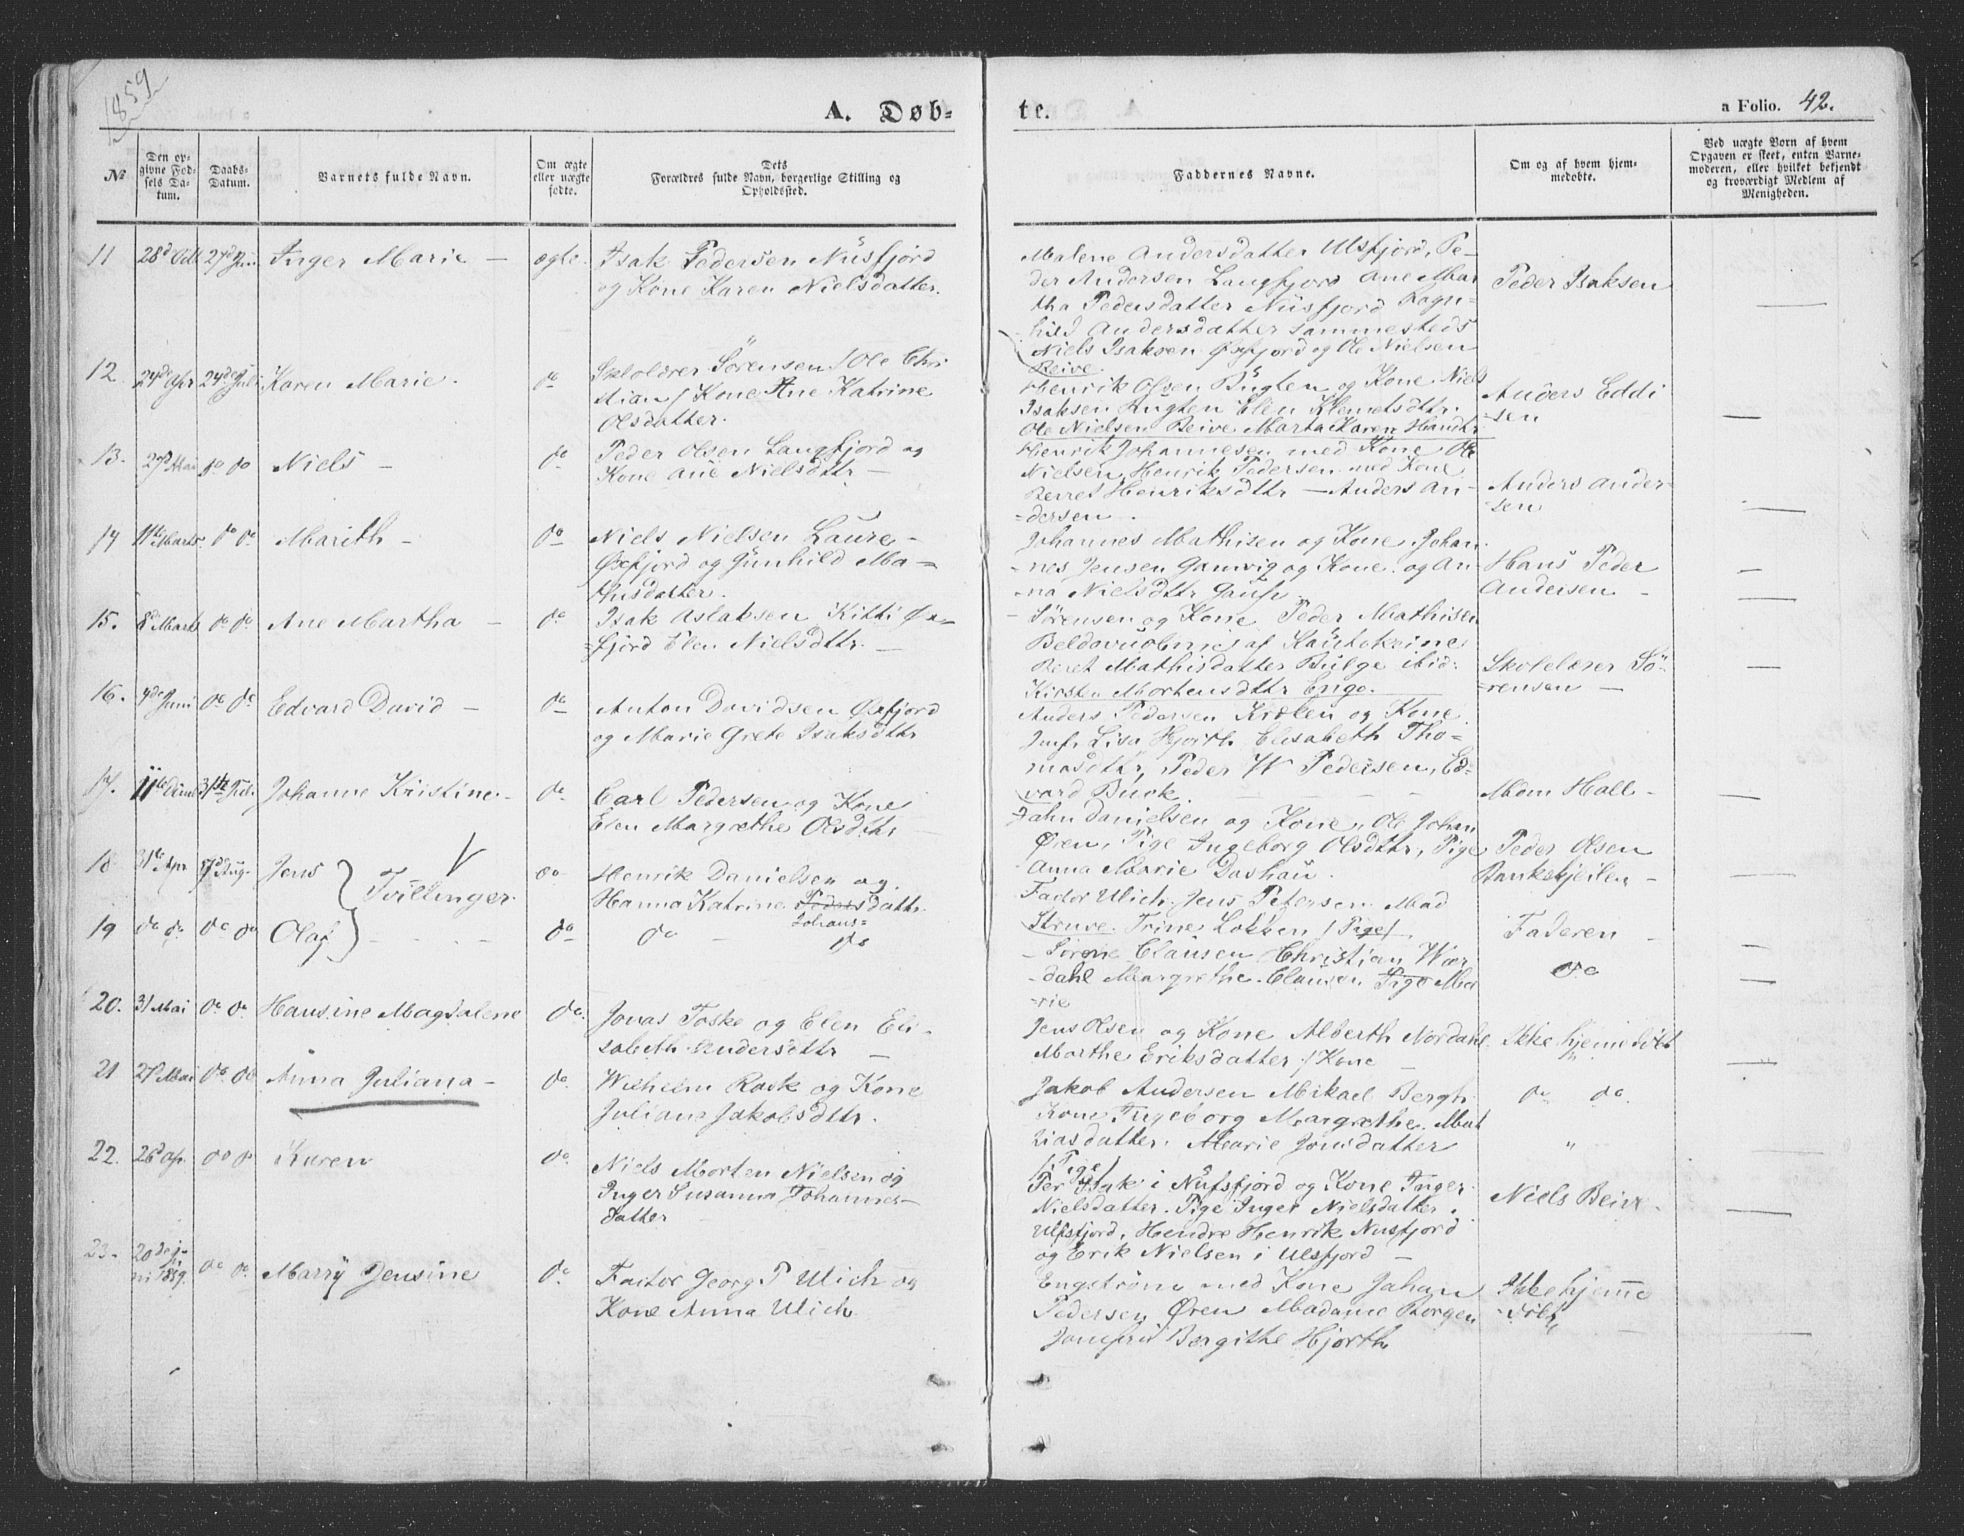 1859
A. Døb-
te.
a Folio. 42.
№
Den op-
givne Fød-
sels Da-
tum.
Daabs-
Datum.
Barnets fulde Navn.
Om ægte
eller uægte
fødte.
Dets
Forældres fulde Navn, borgerlige Stilling og
Opholdssted.
Faddernes Navne.
Om og af hvem hjem-
medøbte.
Ved uægte Børn af hvem
Opgaven er skeet, enten Barne-
moderen, eller hvilket bekjendt
og troværdigt Medlem af
Menigheden.
11 28d 27d Inger Marie — ægte. Isak Pedersen Nusfjord
og Kone Karen Nielsdatter.
Malene Andersdatter Ulsfjord, Pe-
der Andersen Langfjord Ane Mar
tha Pedersdatter Nusfjord Ragn-
hild Andersdatter sammesteds
Niels Isaksen Øxfjord og Ole Nielsen
Reive.
Peder Isaksen
12. 24de Apr 24de Juli Karen Marie. do Skolelærer Sörensen / Ole Chri
stian / Kone Ane Katrine
Olsdatter.
Henrik Olsen Bugten og Kone Niels
Isaksen Bugten Elen Klemetsdttr.
Ole Nielsen Reive Marta Karen Hansdtr
Anders Eddi
-sen
13. 27 Mai do do Niels — do Peder Olsen Langfjord og
Kone Ane Nielsdttr —
Henrik Johannesen med Kone Ole
Nielsen, Henrik Pedersen med Kone
Berret Henriksdttr — Anders An-
dersen.
Anders Ander-
sen
14 11te Marts do do Marith — do Niels Nielsen Laure —
Øxfjord og Gunhild Ma-
thisdatter.
Johannes Mathisen og Kone. Johan
-nes Jensen Gamvig og Kone. og An-
-na Nielsdttr
Hans Peder
Andersen —
15. 8d Marts do do Ane Martha — do Isak Aslaksen Kitti Øx-
fjord Elen Nielsdttr. —
Sörensen og Kone Peder Mathisen
af Kautokeino
Beret Mathisdatter Bulge ibid.
Kirsten Mortensdttr Enge.
Skolelærer Sö-
-rensen —
16. 4de Juni do do Edvard David — do Anton Davidsen Øxfjord
og Marie Grete Isaksdttr
Anders Pedersen Kvalen og Kone
Jmfr. Lisa Hjorth Elisabeth Tho-
masdttr, Peder W Pedersen, Ed-
vard Buck.
Mdm Hall —
17. 11te 31te Juli Johanne Kristine. — do Carl Pedersen og Kone
Elen Margrethe Olsdttr —
Jahn Danielsen og Kone, Ole Johan
Øren, Pige Ingeborg Olsdttr, Pige
Anna Marie Dashau.
Peder Olsen
—
18 31te Apr 7d Aug. Jens } Tvillinger. do Henrik Danielsen og
Hanna Katrine Peders datter.
Johans-
Factor Ulich. Jens Petersen Mad
Struve. Trine Lökken / Pige /.
Faderen —
19 do do do do Olaf do do — do
Sörene Clausen Christian Wær
-dahl Margrethe Clausen Pige Ma
rie
do
20. 31 Mai do do Hansine Magdalene do. Jonas Foske og Elen Eli-
sabeth Andersdttr —
Jens Olsen og Kone Alberth Nordahl
Marthe Eriksdatter / Kone —
Ikke hjemedöbt
21 27 Mai do do Anna Juliana — do Wilhelm Rask og Kone
Juliane Jakobsdttr.
Jakob Andersen Mikael Bergh
Kone Ingeborg Margrethe Mat
hiasdatter. Marie Jonsdatter
/ Pige /
do do.
"
22. 26d Ap. do do Karen do Niels Morten Nielsen og
Inger Susanna Johannes-
datter —
Per Isak i Nusfjord og Kone Inger
Nielsdatter. Pige Inger Nielsdatter.
Ulfsfjord, Hendre Henrik Nusfjord
og Erik Nielsen i Ulsfjord —
Niels Beive.
23. 20 1859. do do. Marry Jensine do Factor Georg P Ulich og
Kone Anna Ulich.
Engström med Kone Johan
Pedersen Øren Madame Borgen
Jomfru Bergithe Hjorth
Ikke hjemme
döbt